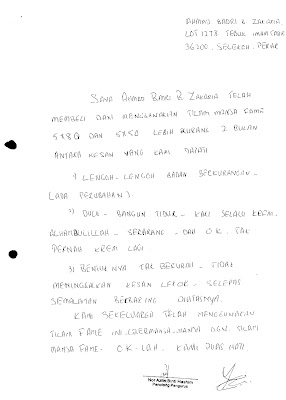 AHMAD BADRI B ZAKARIA
LOT 1278 TEDUH
36200. SELEKOH. PERAK
SAYA AHMAD BADRI B ZAKARIA TELAH
MEMBELI DAN MENGGUNAKAN TILAM MANJA FAME
5X8Q DAN 5X5Q LEBIH KURANG 2 BULAN
ANTARA KESAN YANG KAMI DAPATI
1) LENGOH-LENGOH BADAN BERKURANGAN.
(ADA PERUBAHAN).
2) DULU - BANGUN TIDUR - KAKI SELALU KREM.
ALHAMDULILLAH - SEKARANG - DAH OK. TAK
PERNAH KREM LAGI.
3) BENTUKNYA TAK BERUBAH - TIDAK
MENINGGALKAN KESAN LEKOK - SELEPAS
SEMALAMAN BERBARING DIATASNYA.
KAMI SEKELUARGA TELAH MENGGUNAKAN
TILAM FAME INI. DAN TILAM
MANJA FAME - OK-LAH. KAMI PUAS HATI
Penolong Pengurus